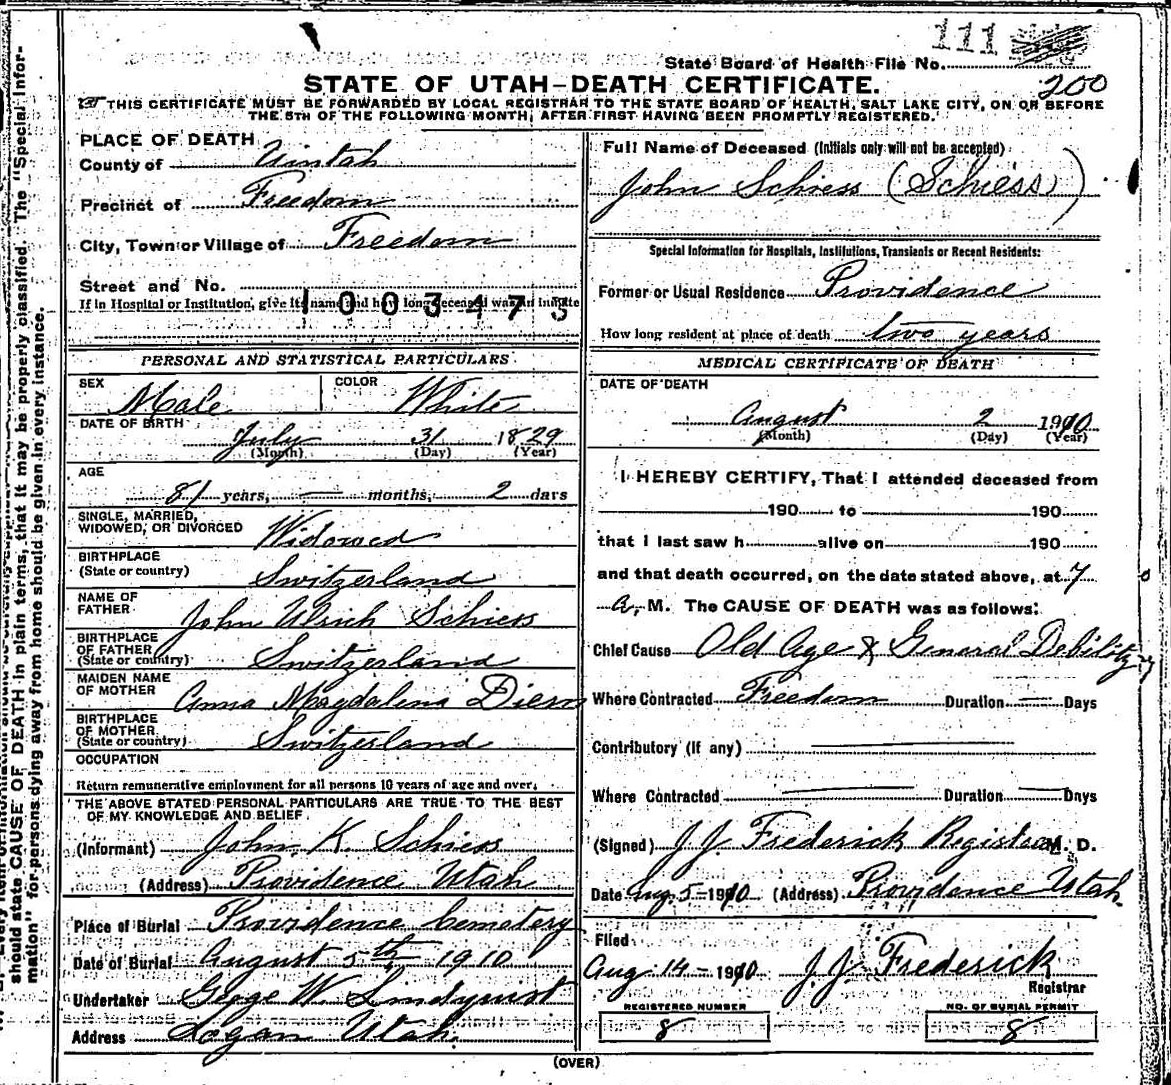 111
State Board of Health File No.
200
STATE OF UTAH–DEATH CERTIFICATE.
THIS CERTIFICATE MUST BE FORWARDED BY LOCAL REGISTRAR TO THE STATE BOARD OF HEALTH, SALT LAKE CITY, ON OR BEFORE
THE 5TH OF THE FOLLOWING MONTH, AFTER FIRST HAVING BEEN PROMPTLY REGISTERED.
PLACE OF DEATH
County of Uintah
Precinct of Freedom
City, Town or Village of Freedom
Street and No.
If in Hospital or Institution, give its name and how long deceased was an inmate
1003475
Full Name of Deceased (Initials only will not be accepted)
John Schiess (Schiess)
Special Information for Hospitals, Institutions, Transients or Recent Residents:
Former or Usual Residence Providence
How long resident at place of death two years
PERSONAL AND STATISTICAL PARTICULARS
SEX Male COLOR White
DATE OF BIRTH July 31 1829
(Month) (Day) (Year)
AGE
81 years, — months, 2 days
SINGLE, MARRIED,
WIDOWED, OR DIVORCED Widowed
BIRTHPLACE
(State or country) Switzerland
NAME OF
FATHER John Ulrich Schiess
BIRTHPLACE
OF FATHER
(State or country) Switzerland
MAIDEN NAME
OF MOTHER Anna Magdalena Diem
BIRTHPLACE
OF MOTHER
(State or country) Switzerland
OCCUPATION
Return remunerative employment for all persons 10 years of age and over.
THE ABOVE STATED PERSONAL PARTICULARS ARE TRUE TO THE BEST
OF MY KNOWLEDGE AND BELIEF
(Informant) John K. Schiess
(Address) Providence Utah
Place of Burial Providence Cemetery
Date of Burial August 5th 1910
Undertaker George W Lindquist
Address Logan Utah.
MEDICAL CERTIFICATE OF DEATH
DATE OF DEATH
August 2 1910
(Month) (Day) (Year)
I HEREBY CERTIFY, That I attended deceased from
190 to 190
that I last saw h alive on 190
and that death occurred, on the date stated above, at 7
A. M. The CAUSE OF DEATH was as follows:
Chief Cause Old Age & General Debility
Where Contracted Freedom Duration — Days
Contributory (if any) —
Where Contracted — Duration — Days
(Signed) J. J. Frederick Registrar M. D.
Date Aug 5–1910 (Address) Providence Utah.
Filed
Aug 14–1910 J. J. Frederick
Registrar
REGISTERED NUMBER NO. OF BURIAL PERMIT
8 8
(OVER)
should state CAUSE OF DEATH in plain terms, that it may be properly classified. The "Special Infor-
mation" for persons dying away from home should be given in every instance.